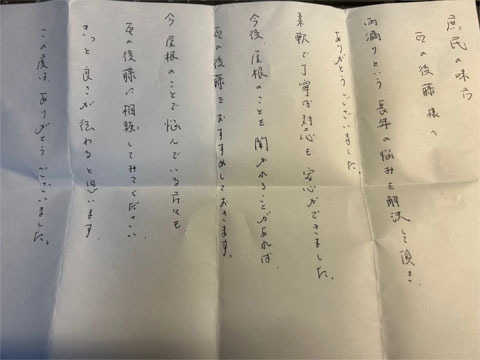 庶民の味方
瓦の後藤 様へ
雨漏りという長年の悩みを解決して頂き、
ありがとうございました。
柔軟で丁寧な対応も安心ができました。
今後屋根のことを聞かれることがあれば、
瓦の後藤をおすすめしておきます。
今屋根のことで悩んでいる方にも
瓦の後藤へ相談してみてください、
きっと良さが伝わると思います。
この度はありがとうございました。